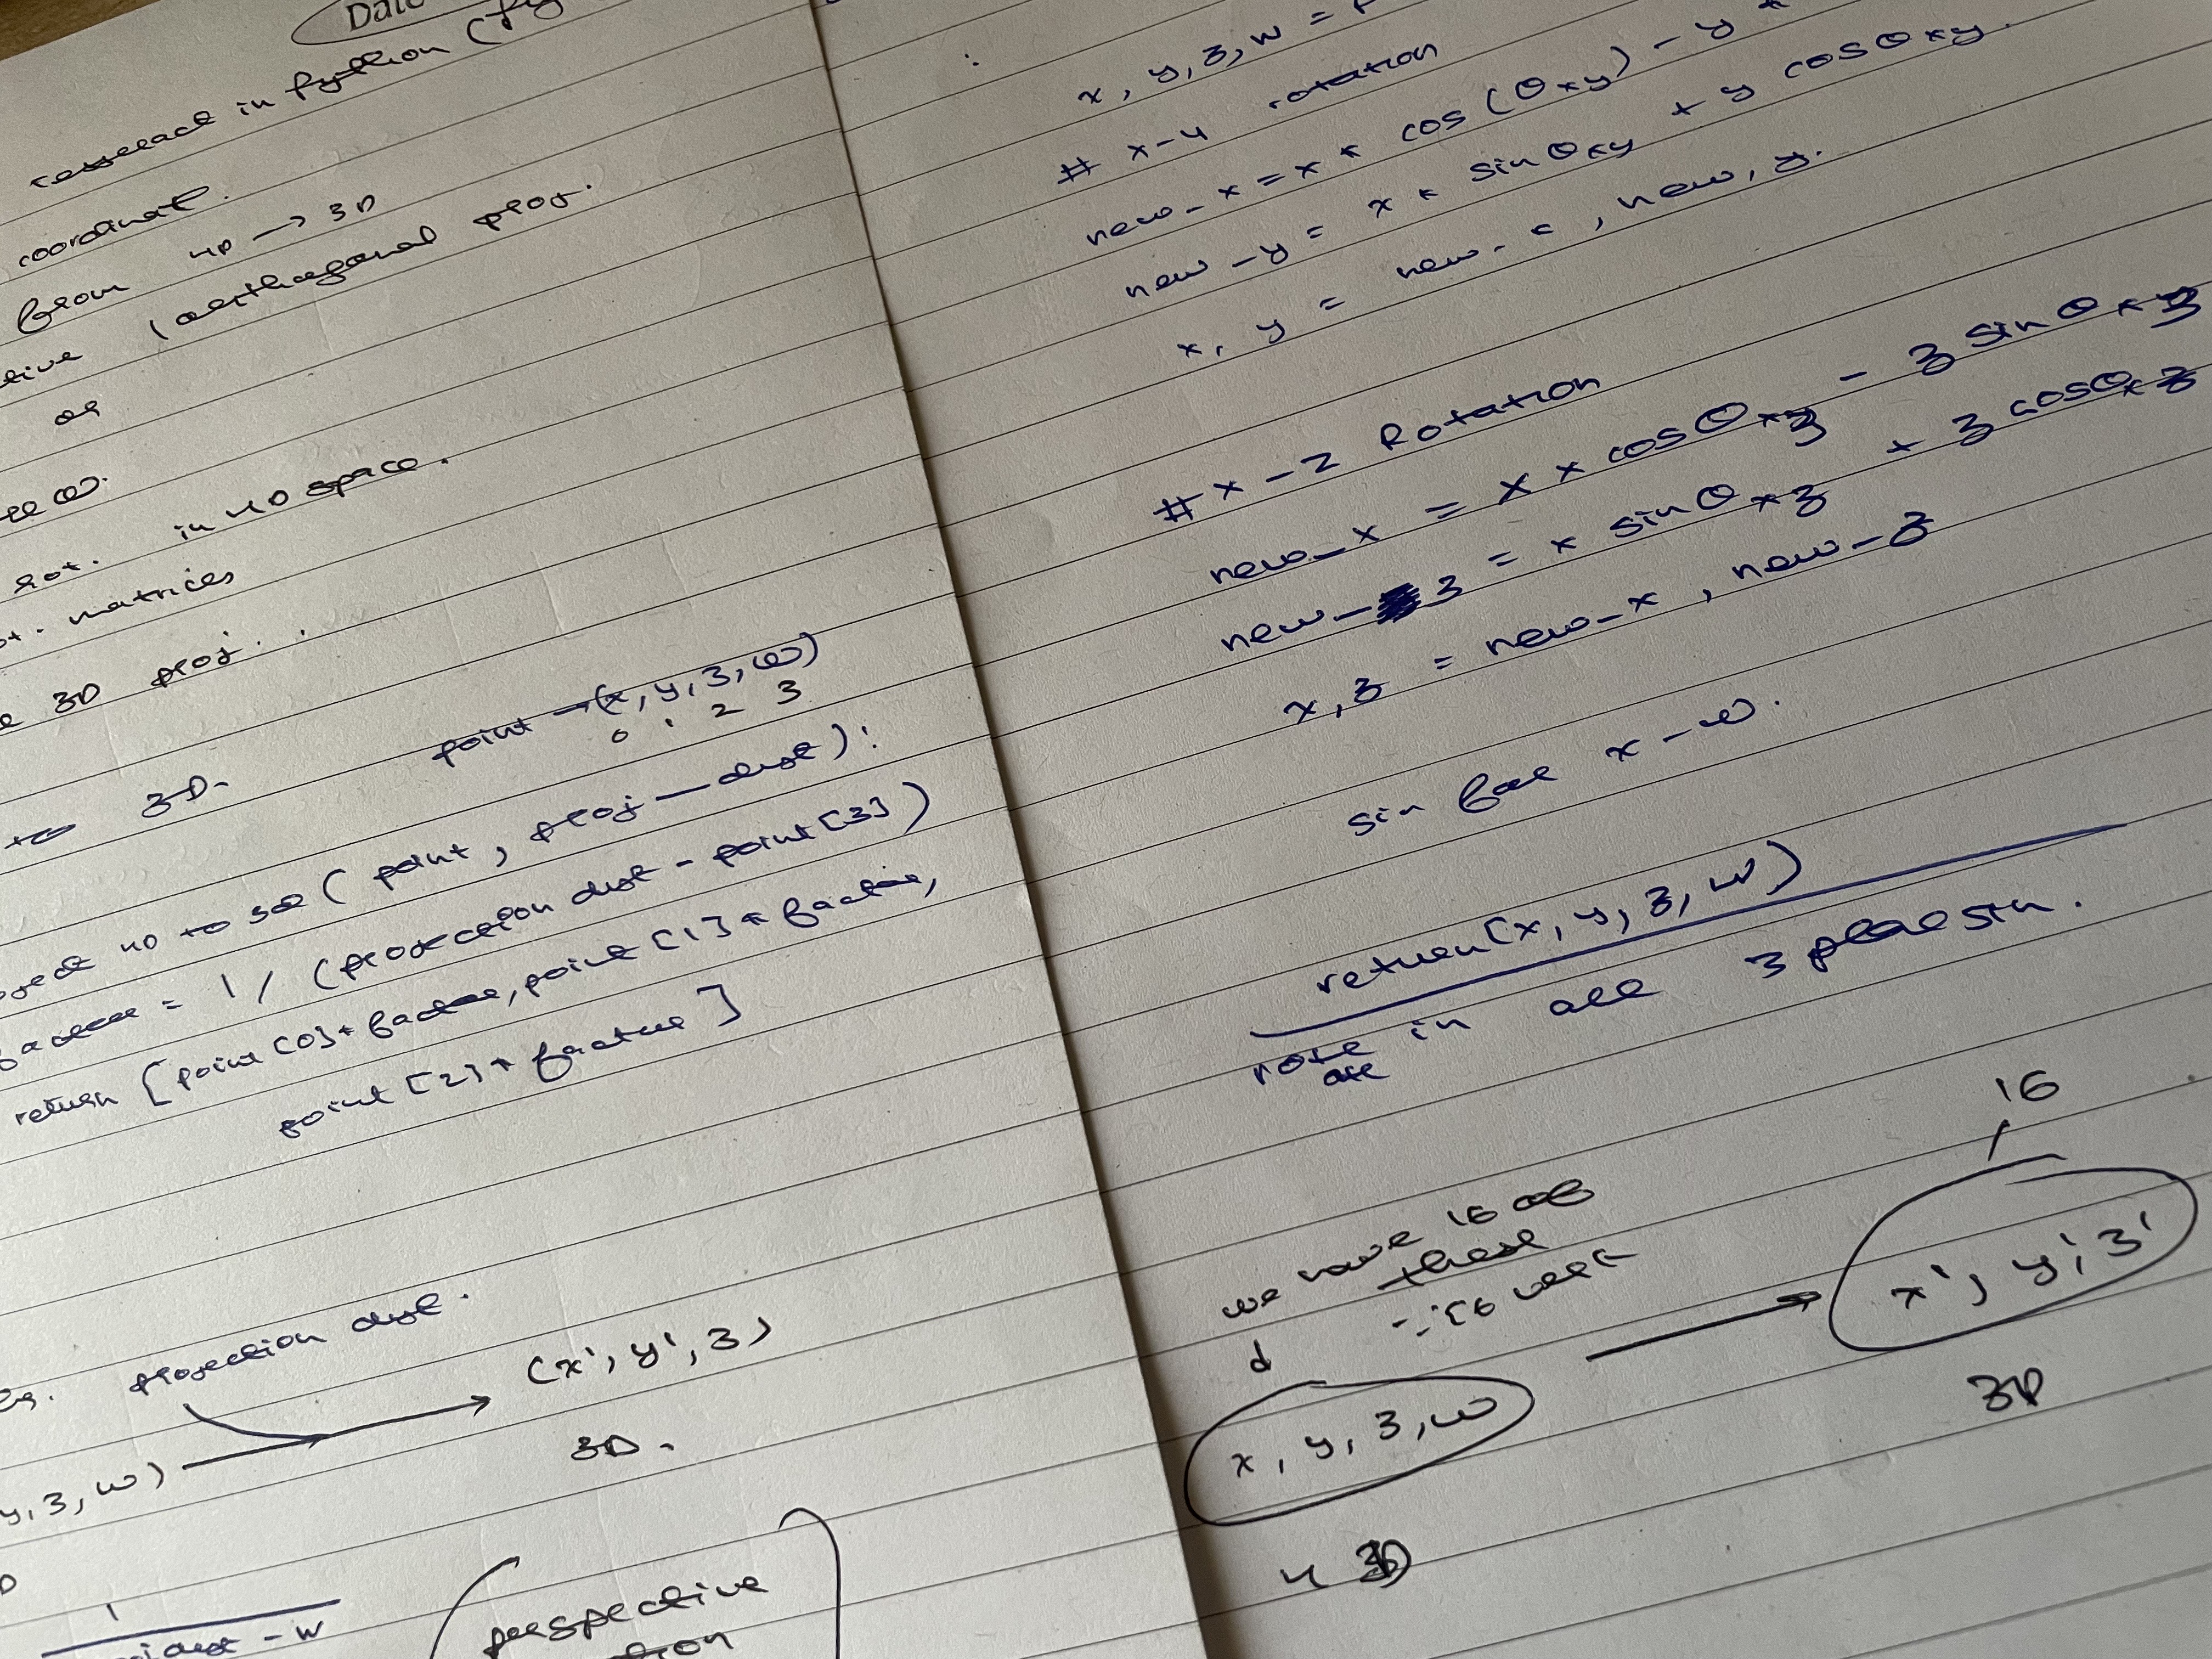 Date
tesseract in Python (Py
coordinat.
from 4D → 3D
tive (orthogonal proj.
or
in 4D space.
rot.
ot. matrices
3D proj.
to 3D.
point → (x, y, z, w)
0 1 2 3
oject 4D to 3d ( point, proj_dist):
factor = 1 / (projection dist - point[3])
return [point[0]* factor, point[1] * factor,
point[2] * factor]
projection dist.
y, z, w) → (x', y', z)
3D.
1
dist - w
perspective
x, y, z, w = P
# x-y rotation
new_x = x * cos(θxy) - y *
new_y = x * sin θxy + y cos θxy.
x, y = new_x, new, y.
# x-z Rotation
new_x = x * cosθxz - z sinθxz
new_z = x sinθxz + z cosθxz
x, z = new_x, new_z
sin for x-w.
return(x, y, z, w)
rotate in all 3 plane sin.
are
16
we have 16 of
these
∵ 16 vert
d
x, y, z, w → x', y', z'
4D
3D